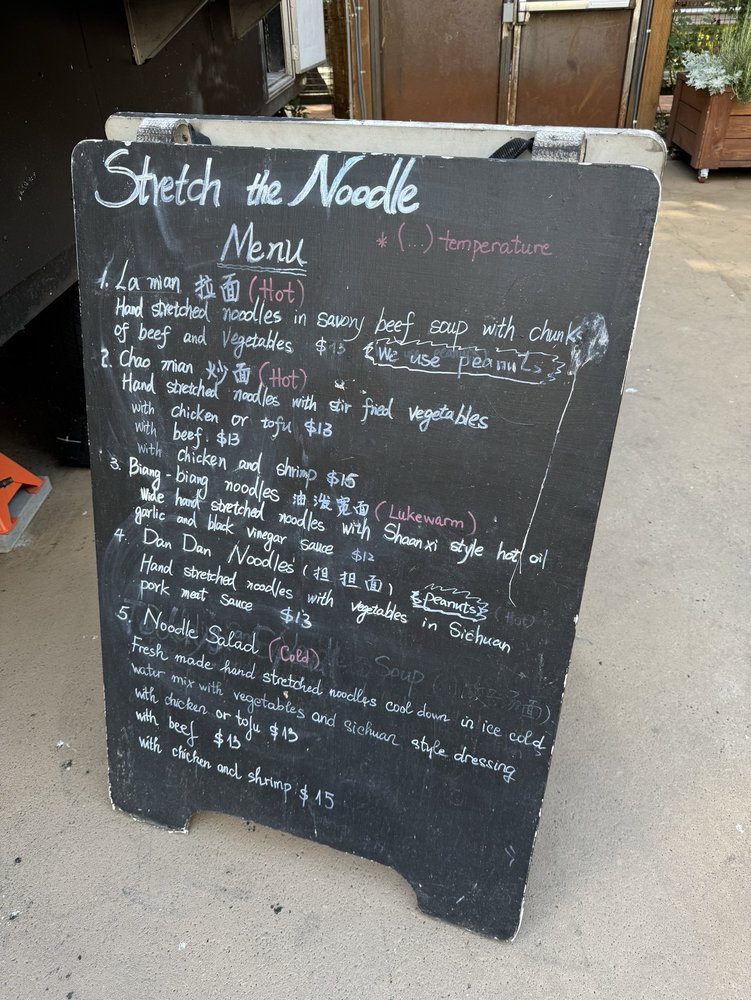 Stretch the Noodle
Menu
* (...) temperature
1. La mian 拉面 (Hot)
Hand stretched noodles in savory beef soup with chunk
of beef and Vegetables $13
We use peanuts
2. Chao mian 炒面 (Hot)
Hand stretched noodles with stir fried vegetables
with chicken or tofu $13
with beef. $13
with chicken and shrimp $15
3. Biang-biang noodles 油泼宽面 (Lukewarm)
Wide hand stretched noodles with Shaanxi style hot oil
garlic and black vinegar sauce $12
4. Dan Dan Noodles (担担面) (Hot)
Hand stretched noodles with vegetables in Sichuan
peanuts
pork meat sauce $13
5. Noodle Salad (Cold)
Soup
Fresh made hand stretched noodles cool down in ice cold
water mix with vegetables and sichuan style dressing
with chicken or tofu $13
with beef $13
with chicken and shrimp $15